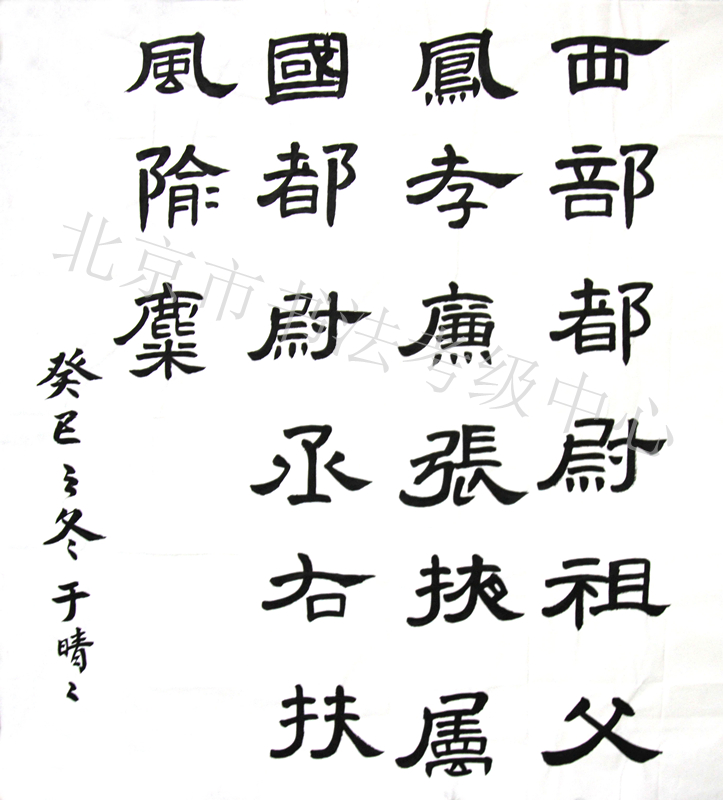 西部都尉祖父
鳳孝廉張掖屬
國都尉丞右扶
風隃麋
癸巳立冬于晴晴
北京市书法考级中心